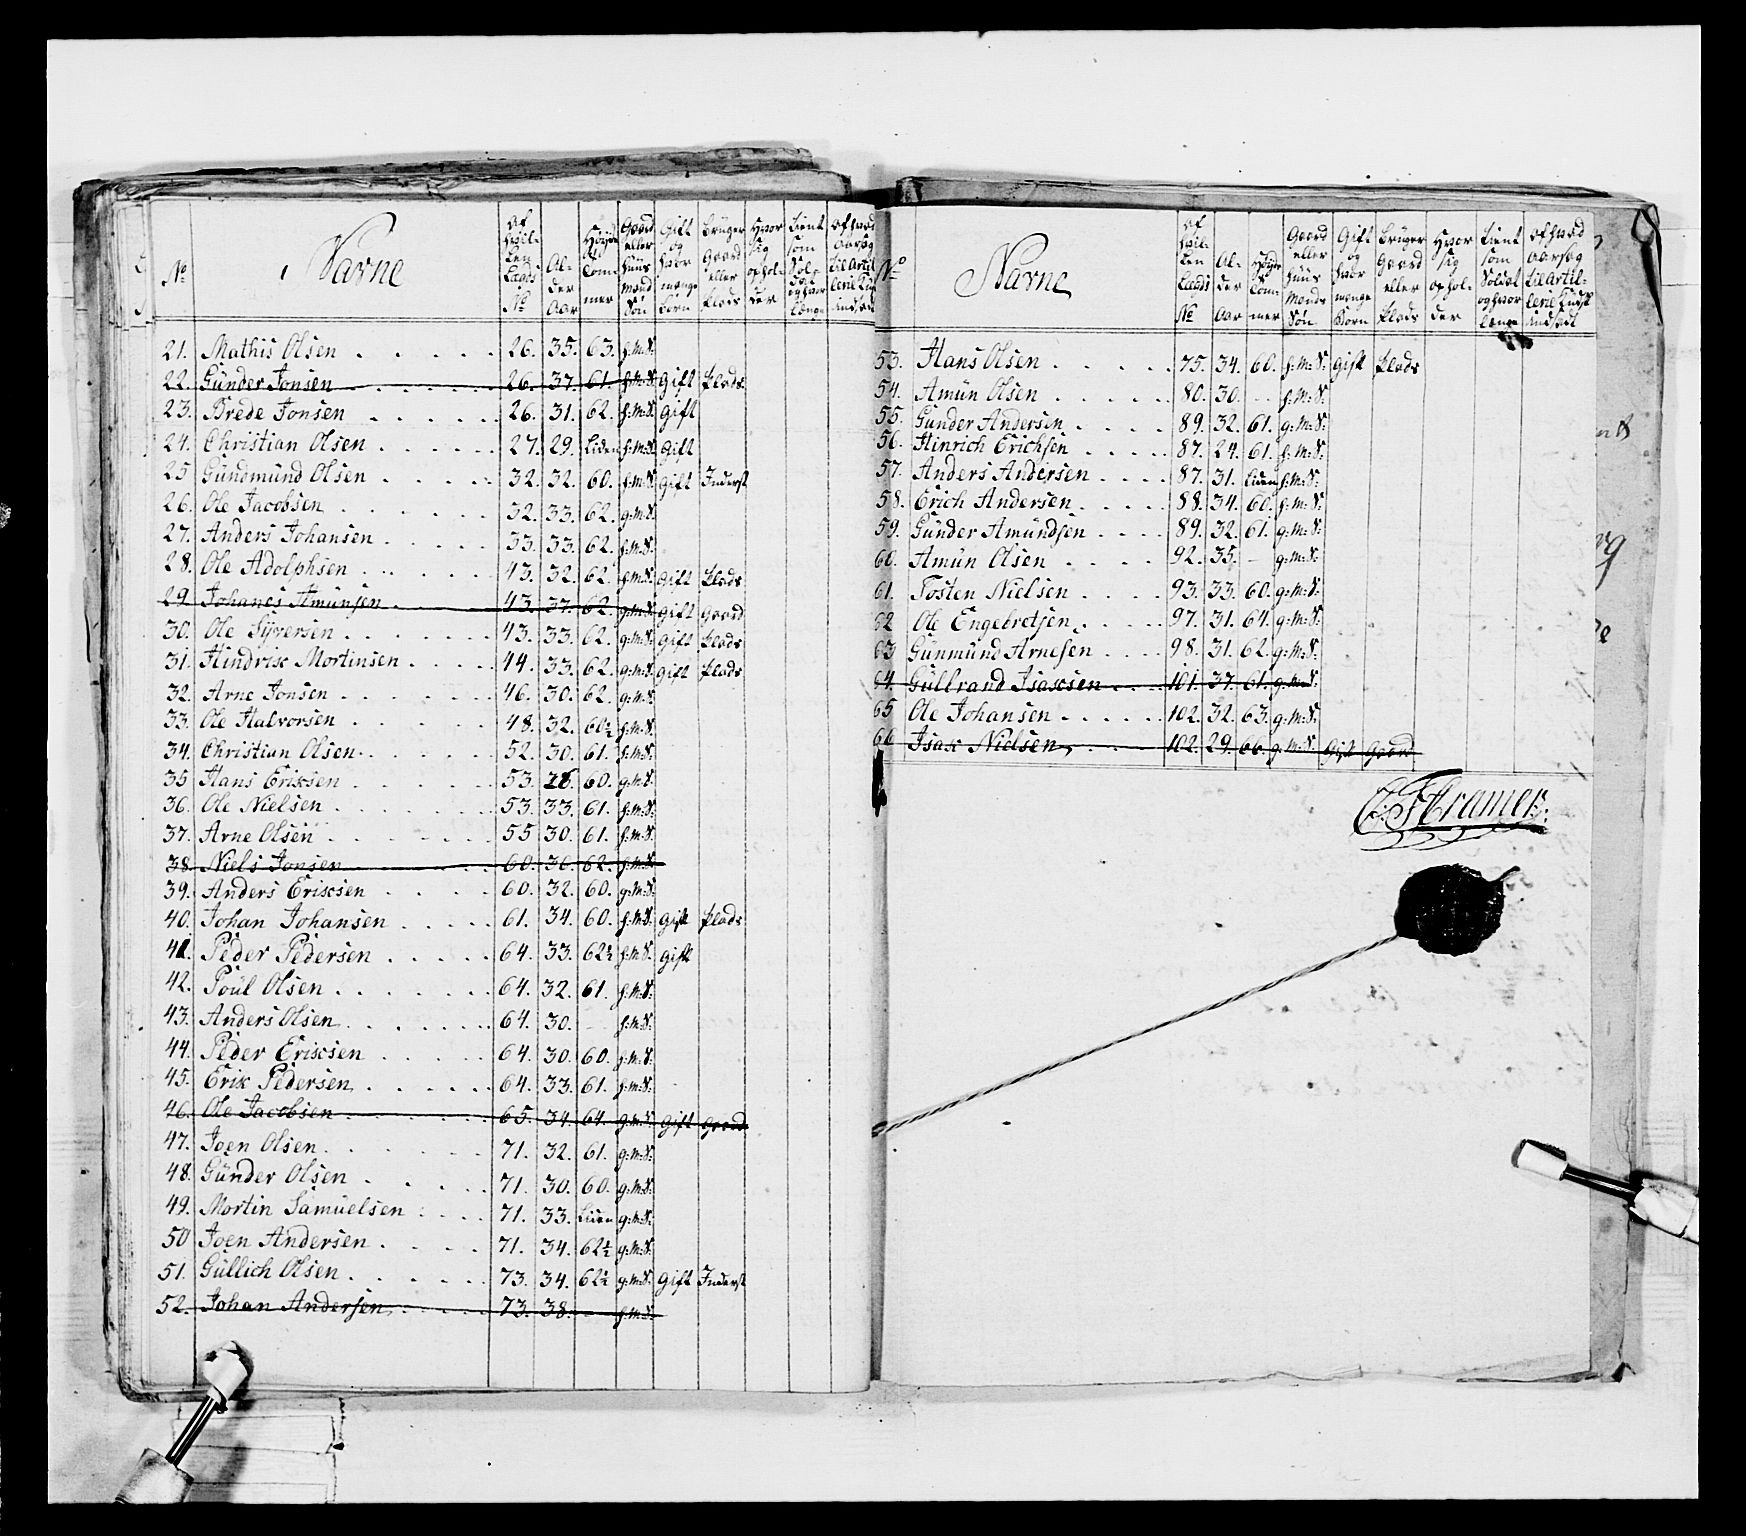 No
Navne
Af hvilken Lægds No
Alder Aar
Høyde Tommer
Gaard eller Huus Mands Søn
Gift og hvor mange Børn
Bruger Gaard eller Plads
Hvor sig opholder
Tient som Soldat og hvor længe
Af hvad Aarsag til Artillerie Tieneste
21. Mathis Olsen . . . . . 26. 35. 63. h:M:S:
22. Günder Jonsen . . . . . 26. 37. 61. h:M:S: Gift Plads
23. Brede Jonsen . . . . . 26. 31. 62. h:M:S: Gift
24. Christian Olsen . . . . . 27. 29. Liden h:M:S: Gift
25 Gündmünd Olsen . . . . . 32. 32. 60. h:M:S: Gift Inderst
26. Ole Jacobsen . . . . . 32. 33. 62. g:M:S:
27. Anders Johansen . . . . . 33. 33. 62. h:M:S:
28. Ole Adolphsen . . . . . 43. 32. 62. h:M:S: Gift Plads
29. Johanes Amünsen . . . . . 43. 37. 62. g:M:S: Gift Gaard
30. Ole Syversen . . . . . 43. 33. 62. g:M:S: Gift Plads
31. Hindrik Mortinsen . . . . . 44. 33. 62. g:M:S: Gift Plads
32. Arne Jonsen . . . . . 46. 30. 62. g:M:S:
33. Ole Halvorsen . . . . . 48. 32. 60½ h:M:S:
34. Christian Olsen . . . . . 52. 30. 61. h:M:S:
35 Hans Eriksen . . . . . 53. 28. 60. g:M:S:
36. Ole Nielsen . . . . . 53. 33. 61. h:M:S:
37. Arne Olsen . . . . . 55 30. 61. h:M:S:
38. Niels Jonsen . . . . . 60. 36. 62. h:M:S:
39. Anders Ericsen . . . . . 60. 32. 60. g:M:S:
40. Johan Johansen . . . . . 61. 34. 60. h:M:S: Gift Plads
41. Peder Pedersen . . . . . 64. 33. 62½ h:M:S: Gift
42. Poül Olsen . . . . . 64. 32. 61. h:M:S:
43. Anders Olsen . . . . . 64. 30. – h:M:S:
44. Peder Ericsen . . . . . 64. 30. 60. h:M:S:
45. Erik Pedersen . . . . . 64. 33. 61. h:M:S:
46. Ole Jacobsen . . . . . 65. 34. 64. g:M:S: Gift Gaard
47. Joen Olsen . . . . . 71. 32. 61. g:M:S:
48. Günder Olsen . . . . . 71. 30. 60. g:M:S:
49. Mortin Samüelsen . . . . 71. 33. Liden g:M:S:
50 Joen Andersen . . . . 71. 34. 62½ g:M:S:
51. Güllich Olsen . . . . . 73. 34. 62½ g:M:S: Gift Inderst
52. Johan Andersen . . . . . 73. 38. – h:M:S:
No
Navne
Af hvilken Lægds No
Alder Aar
Høyde Tommer
Gaard eller Huus Mands Søn
Gift og hvor mange Børn
Bruger Gaard eller Plads
Hvor sig opholder
Tient som Soldat og hvor længe
Af hvad Aarsag til Artillerie Tieneste
53. Hans Olsen . . . . . 75. 34. 60. h:M:S: Gift Plads
54. Amün Olsen . . . . . 80. 30. – h:M:S:
55. Günder Andersen . . . . 89. 32. 61. g:M:S:
56. Hinrich Erichsen . . . . . 87. 24. 61. h:M:S:
57. Anders Andersen . . . . 87. 31. Liden h:M:S:
58. Erich Andersen . . . . . 88. 34. 60. h:M:S:
59. Günder Amündsen . . . . 89. 32. 61. g:M:S:
60. Amün Olsen . . . . 92. 35. – g:M:S:
61. Tosten Nielsen . . . . 93. 33. 60. g:M:S:
62 Ole Engebretsen . . . . . 97. 31. 64. g:M:S:
63 Günmünd Arnesen . . . . 98. 31. 62. g:M:S:
64. Gülbrand Isacsen . . . . 101. 37. 61. g:M:S:
65 Ole Johansen . . . . . . 102. 32. 63. g:M:S:
66 Isac Nielsen . . . . 102. 29. 66. g:M:S: Gift Gaard